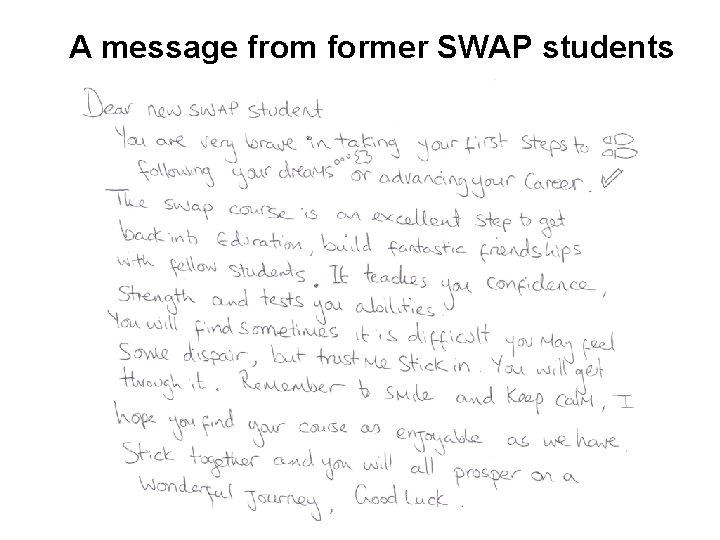 A message from former SWAP students
Dear new SWAP student
You are very brave in taking your first steps to
following your dreams or advancing your career. ✓
The swap course is an excellent step to get
back into Education, build fantastic friendships
with fellow students. It teaches you confidence,
Strength and tests you abilities.
You will find sometimes it is difficult you may feel
Some dispair, but trust me stick in. You will get
through it. Remember to smile and keep calm, I
hope you find your course as enjoyable as we have.
Stick together and you will all prosper on a
wonderful journey, Good Luck.